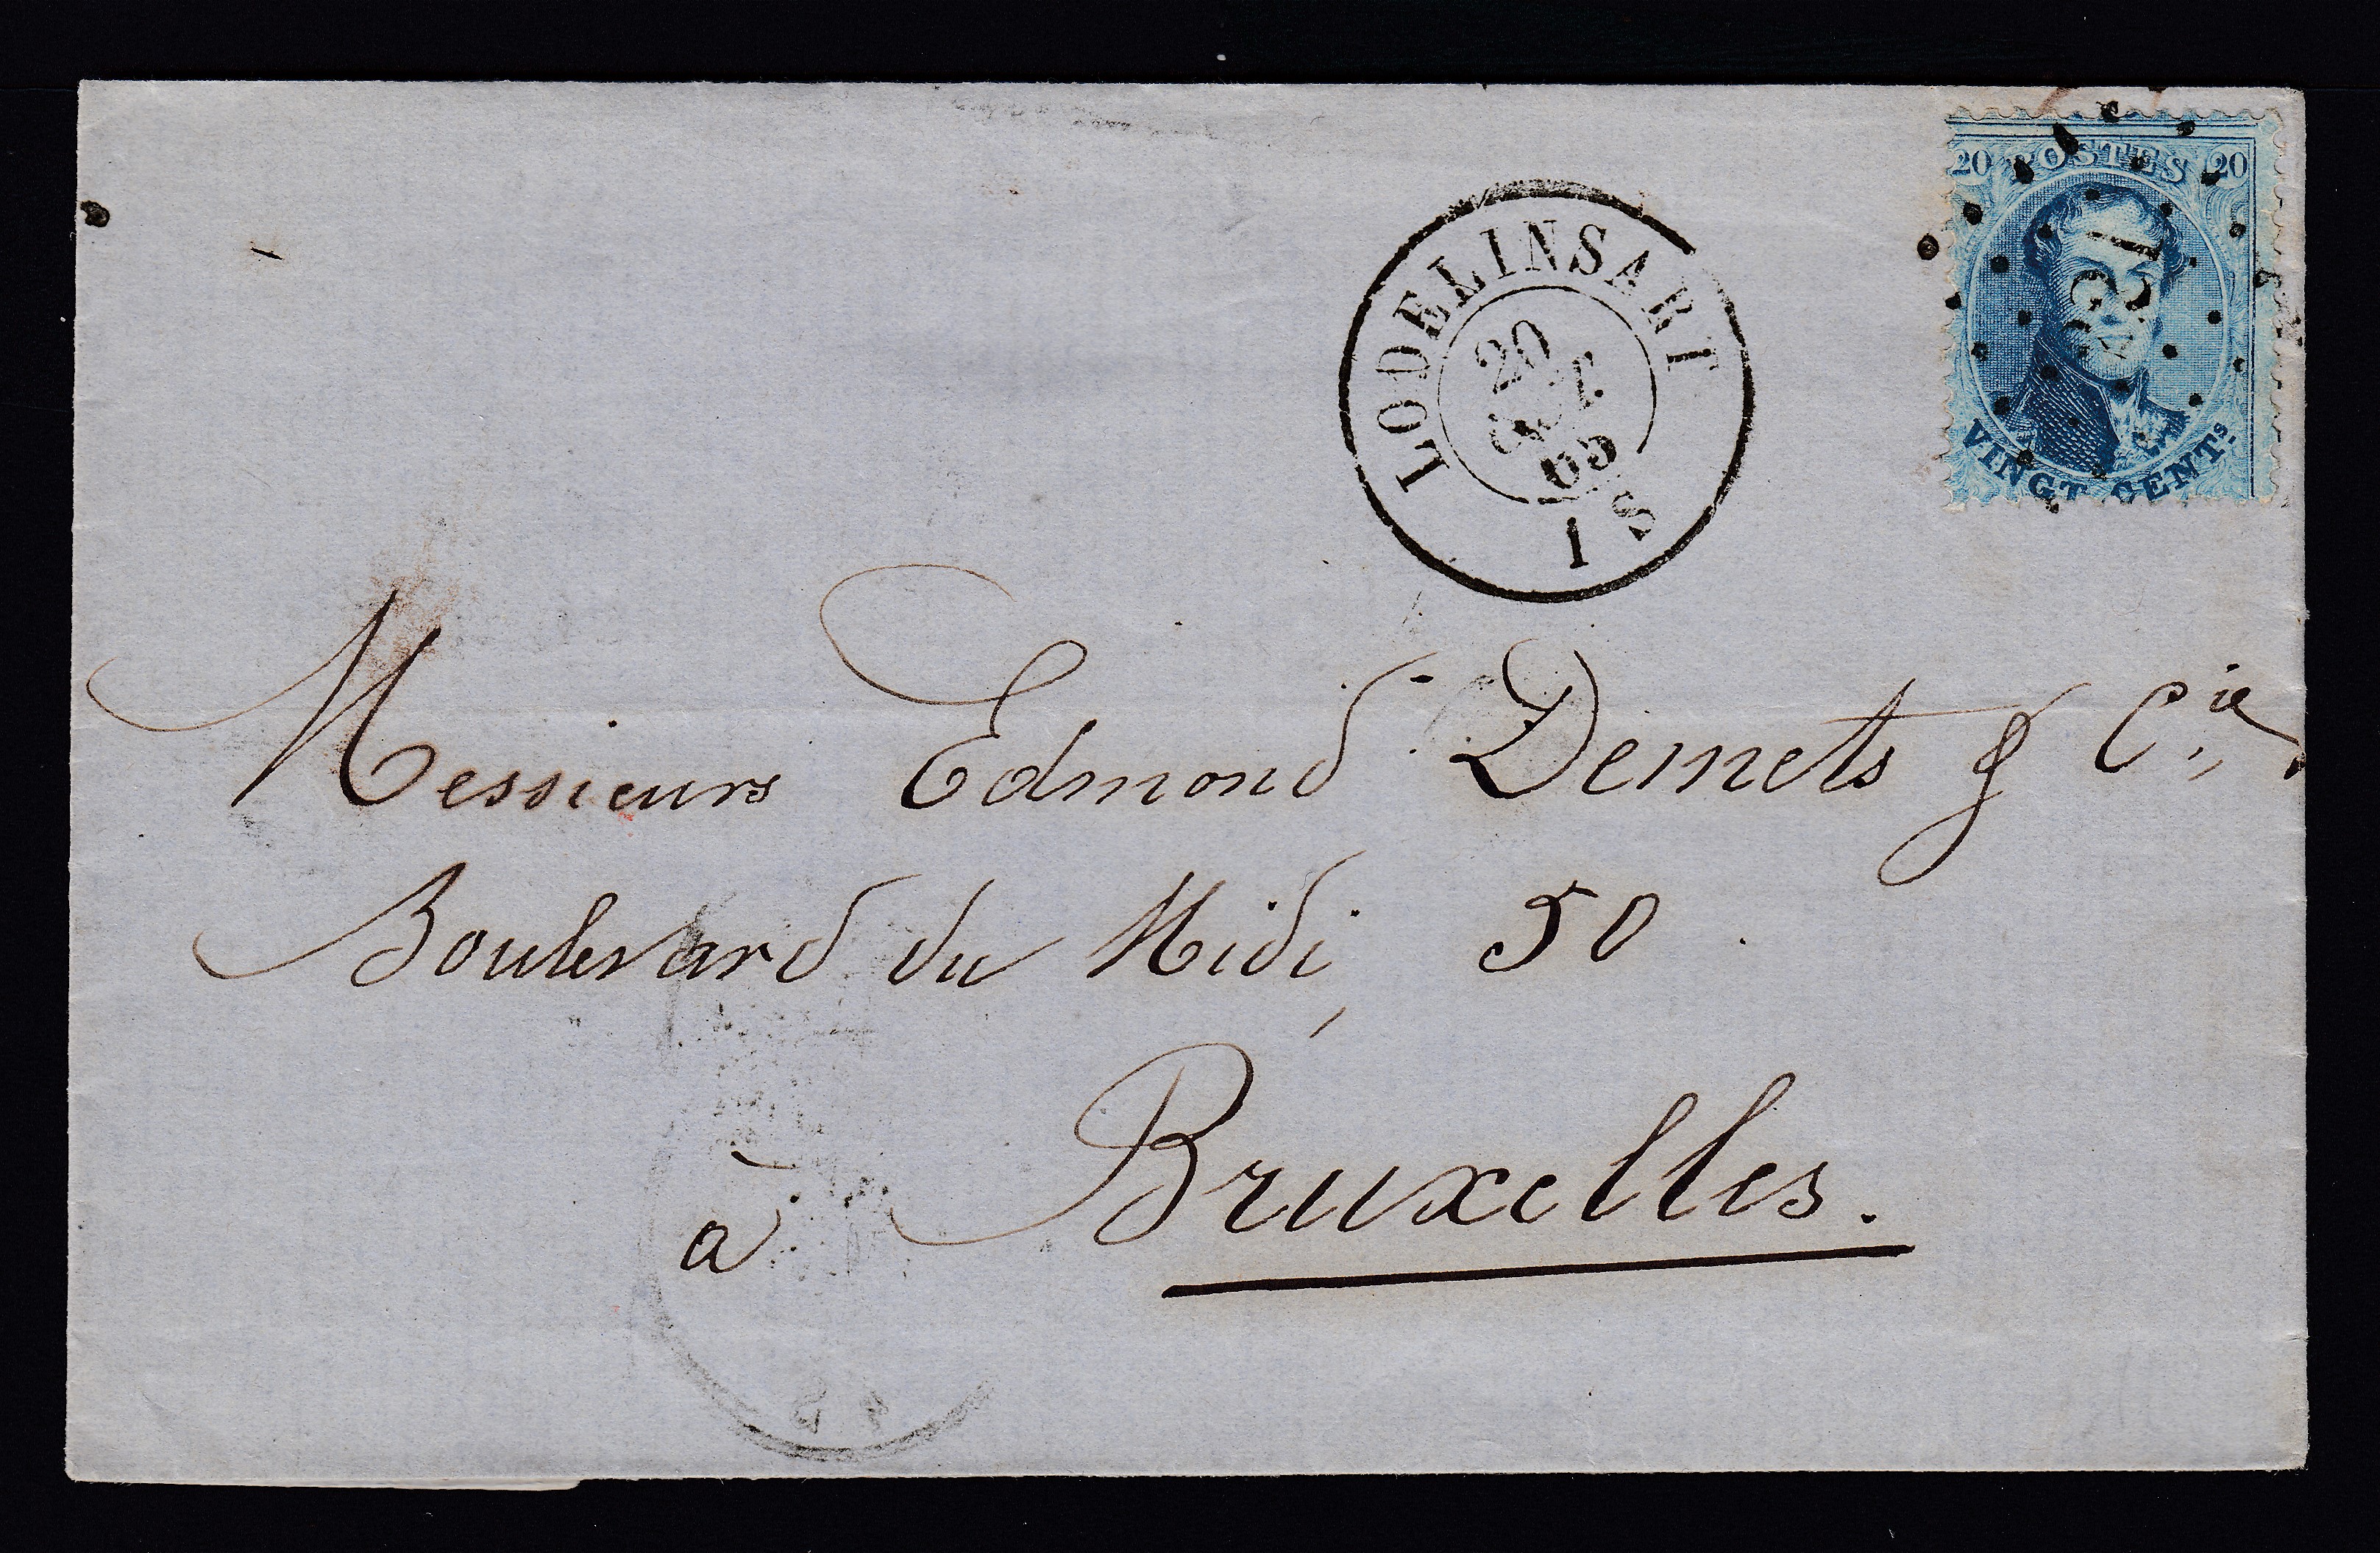 20 POSTES 20
VINGT CENTs.
LODELINSART
20
OCT.
65
1 S
Messieurs Edmond Demets & Cie
Boulevard du Midi, 50.
à Bruxelles.